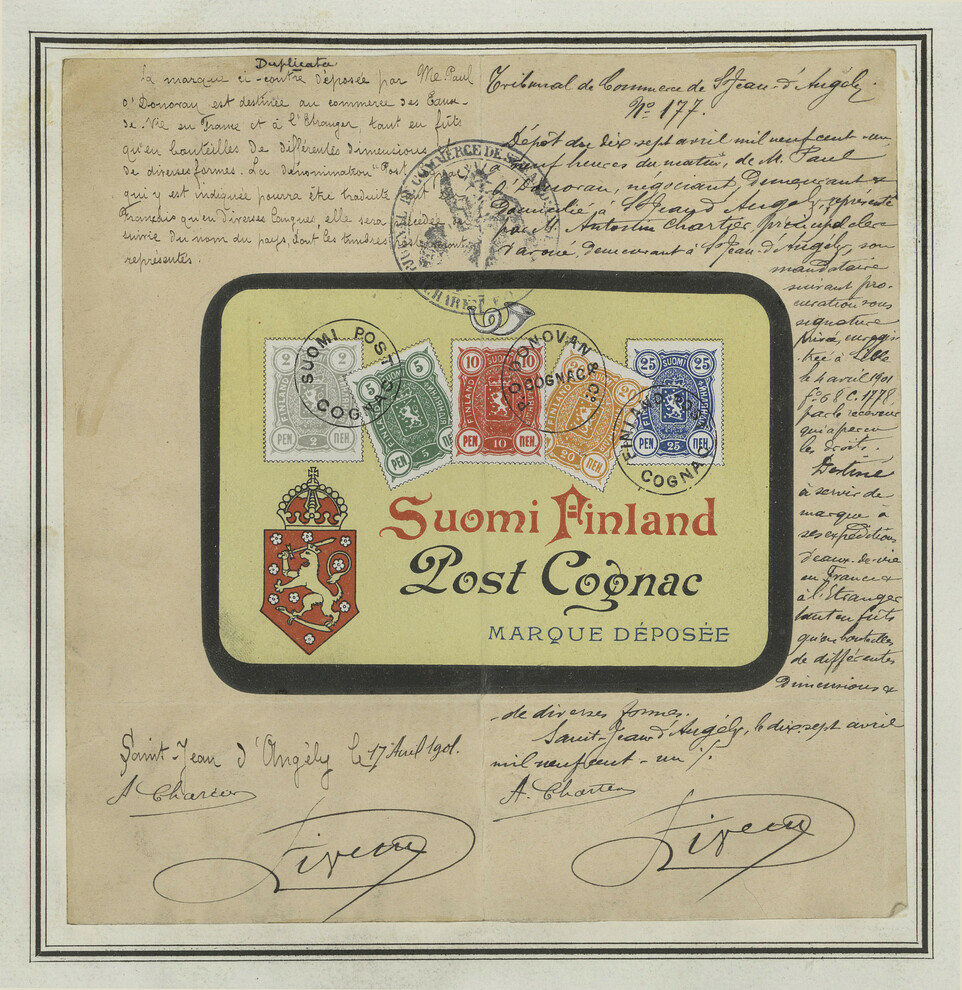 Duplicata
La marque ci-contre déposée par Me Paul
O'Donovan est destinée au commerce des Eaux-
de-Vie en France et à l'Etranger, tant en fûts
qu'en bouteilles de différentes dimensions
de diverses formes. La dénomination "Post
qui y est indiquée pourra être traduite
Français qu'en diverses langues elle sera précédée
suivie du nom du pays, dont les timbres
représentés.
Tribunal de Commerce de St Jean-d'Angély.
No 177.
Dépôt du dix sept avril mil neuf cent-un
à neuf heures du matin, de M. Paul
O'Donovan, négociant, demeurant &
domicilié à St Jean d'Angély, représenté
par M. Antonin Chartier, principal clerc
d'avoué, demeurant à St Jean-d'Angély, son
mandataire
suivant pro-
curation sous
signature
privée, enregis-
trée à
le 4 avril 1901
fo 68 C. 1778.
par le receveur
qui a perçu
les droits.
Destiné
à servir de
marque à
ses expéditions
d'eaux-de-vie
en France &
à l'Etranger
tant en fûts
qu'en bouteilles
de différentes
dimensions &
de diverses formes.
Saint-Jean d'Angély, le dix sept avril
mil neuf cent-un
TRIBUNAL DE COMMERCE DE ST JEAN
SUOMI POST
COGNAC
P. O'DONOVAN & Co
COGNAC
FINLAND POST
COGNAC
2 SUOMI 2
FINLAND
PEN 2 ПЕН
5 SUOMI 5
FINLAND ФИНЛЯНДІЯ
PEN 5 ПЕН
10 SUOMI 10
FINLAND
PEN 10 ПЕН
20
20 ПЕН
25 SUOMI 25
ФИНЛЯНДІЯ
PEN 25 ПЕН
Suomi Finland
Post Cognac
MARQUE DÉPOSÉE
Saint-Jean d'Angély le 17 Avril 1901.
A. Chartier
A. Chartier